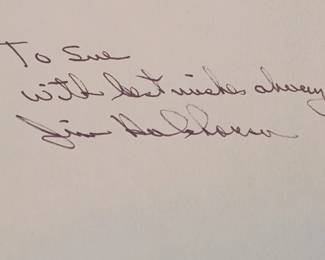 To Sue
with best wishes always
Jim